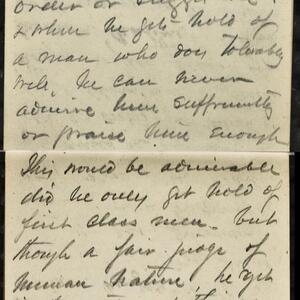 order or
& when he gets hold of
a man who does tolerably
well, he can never
admire him sufficiently
or praise him enough
This would be admirable
did he only get hold of
first class men. but
though a fair judge of
human nature, he yet